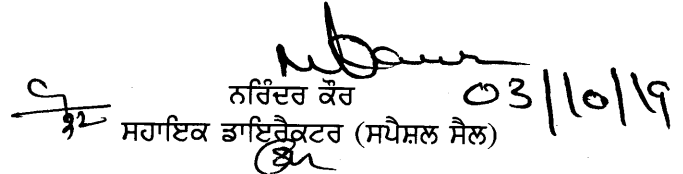 ਨਰਿੰਦਰ ਕੌਰ 03/10/19
ਸਹਾਇਕ ਡਾਇਰੈਕਟਰ (ਸਪੈਸ਼ਲ ਸੈਲ)